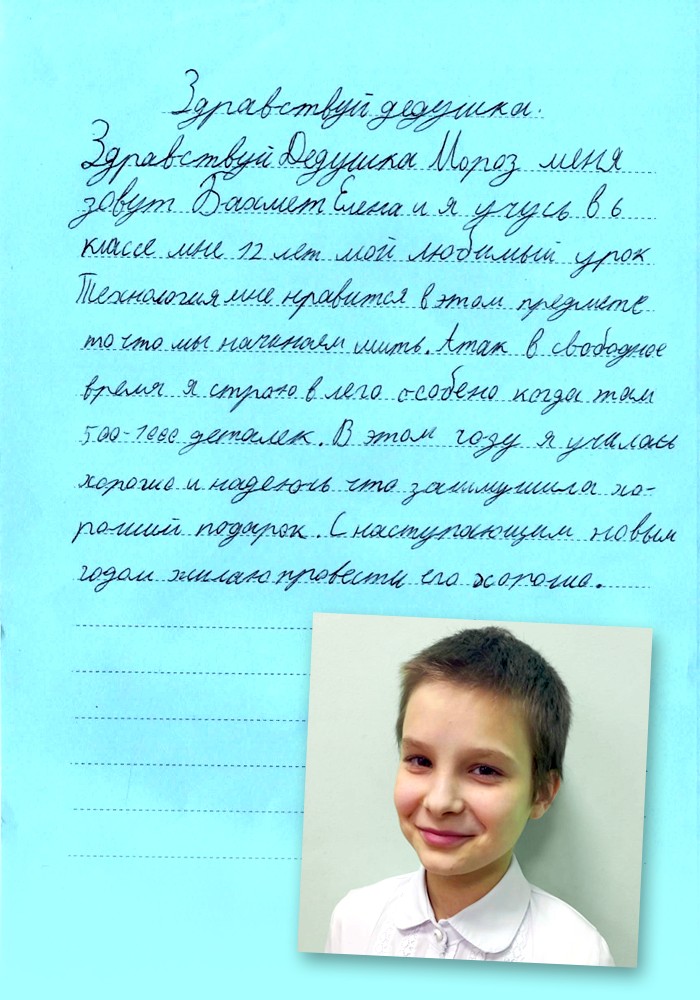 Здравствуй дедушка.
Здравствуй Дедушка Мороз меня
зовут Бахмет Елена и я учусь в 6
классе мне 12 лет мой любимый урок
Технология мне нравится в этом предмете
то что мы начинаем шить. А так в свободное
время я строю в лего особено когда там
500-1000 деталек. В этом году я училась
хорошо и надеюсь что заслужила хо-
роший подарок. С наступающим новым
годом жилаю провести его хорошо.